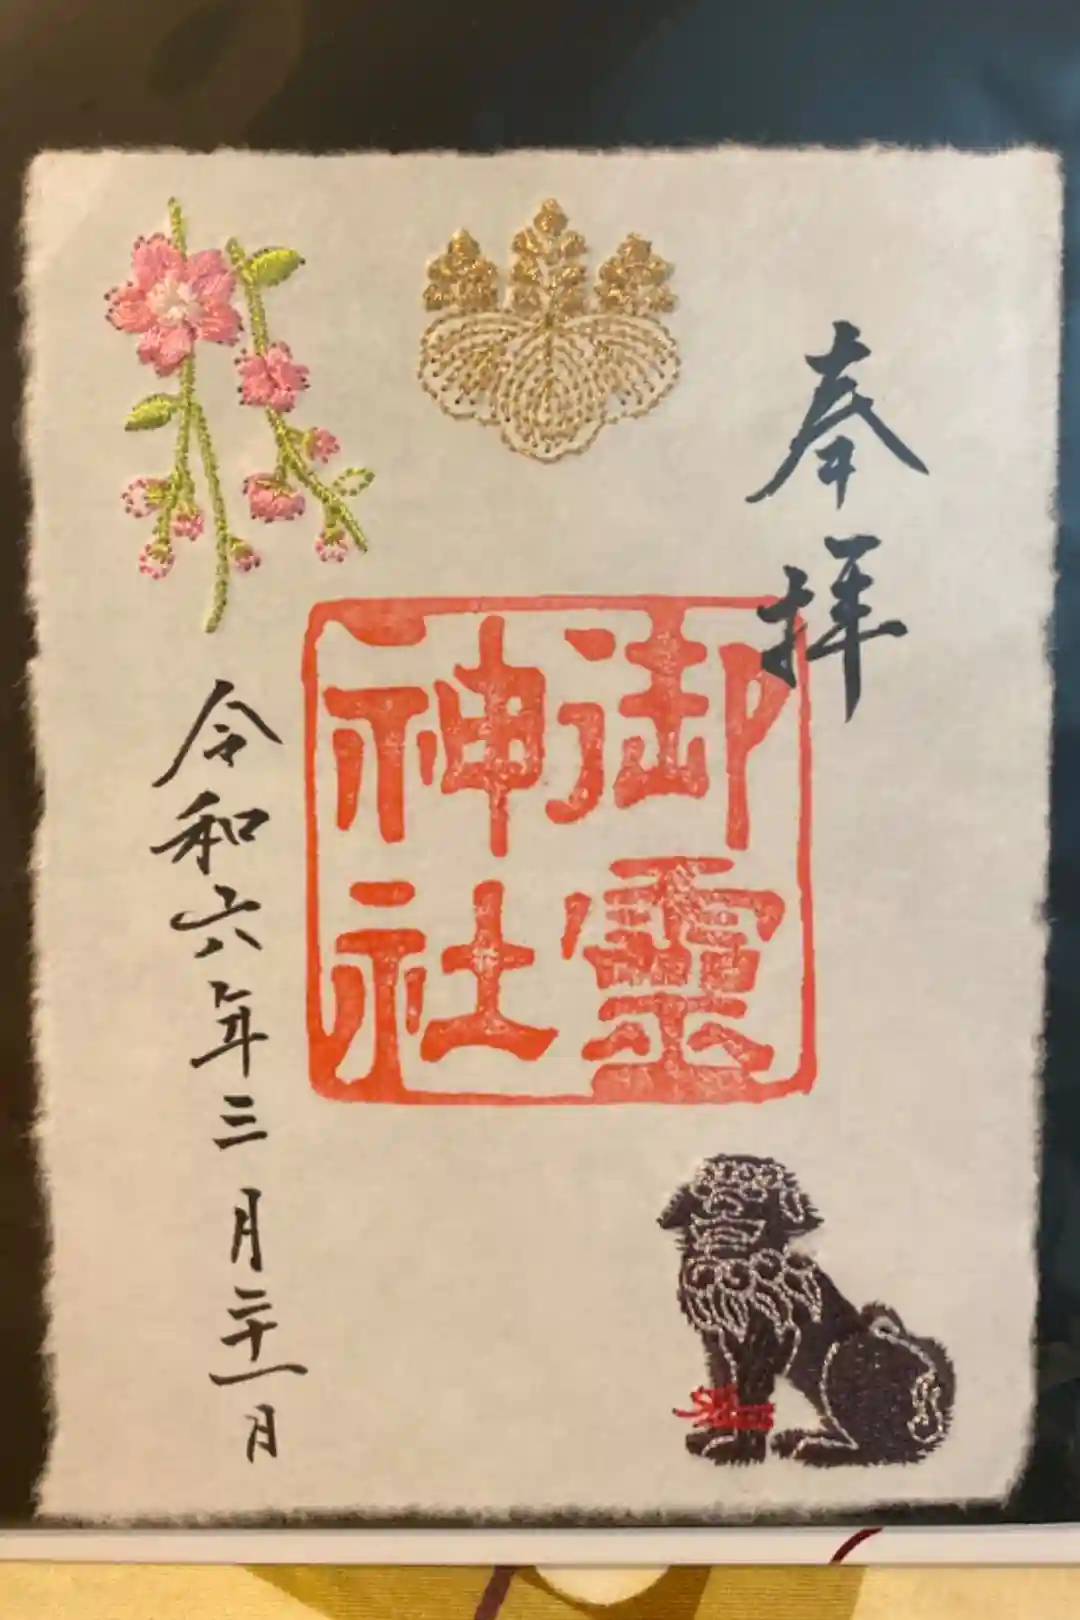 奉拝
御靈
神社
令和六年三月二十一日